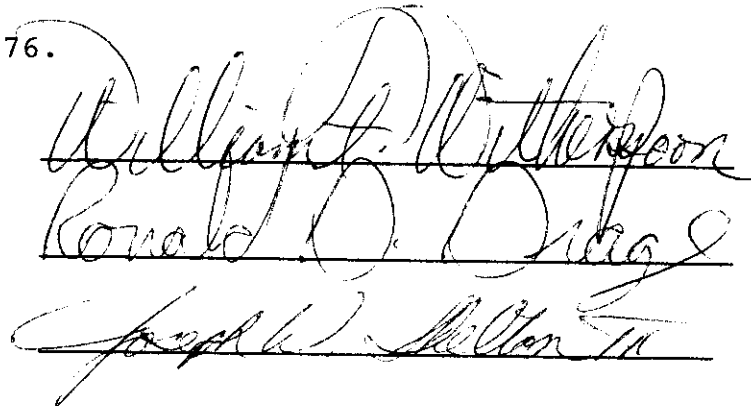 76.
William F. Witherspoon
Ronald D. Drage
Joseph W. Shelton III